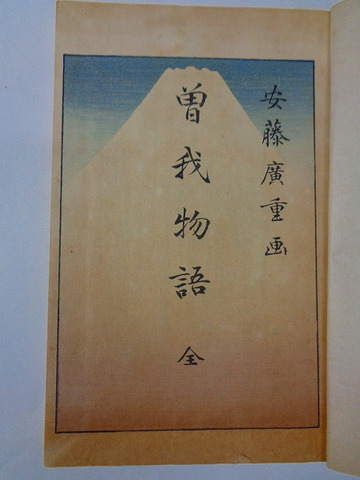 安藤廣重画
曽我物語 全